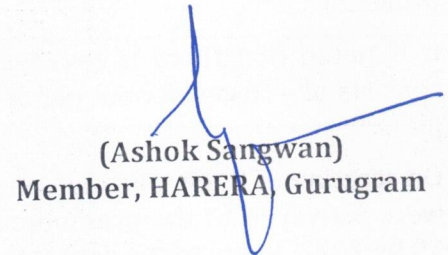 (Ashok Sangwan)
Member, HARERA, Gurugram